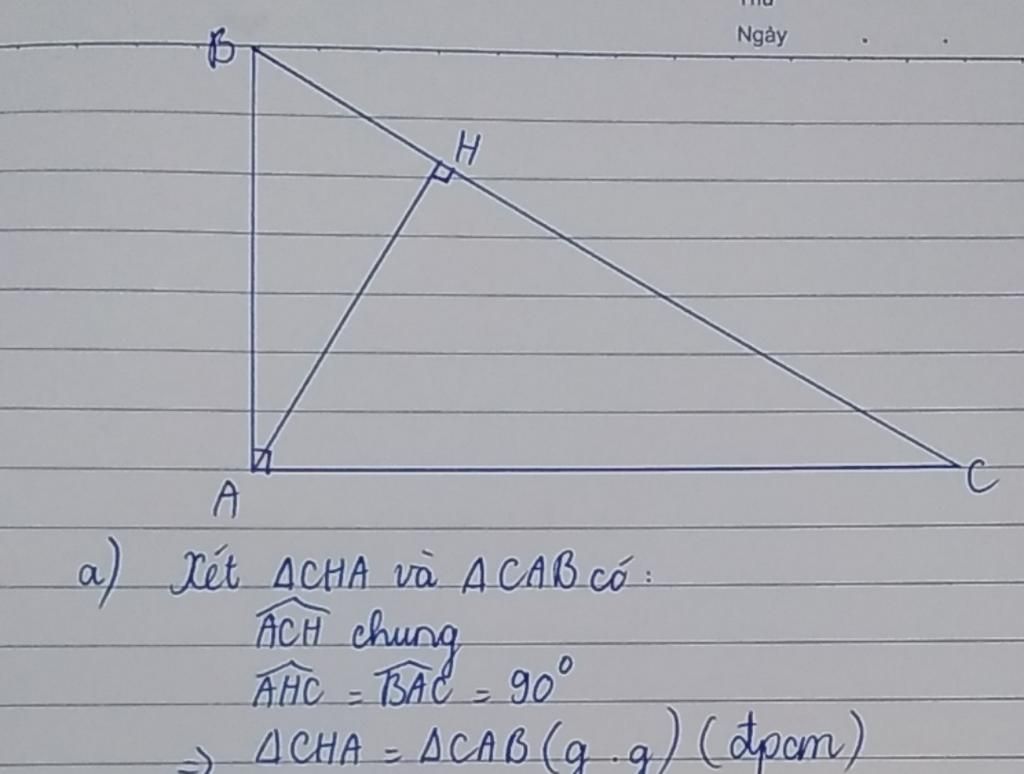 Thứ
Ngày . .
B
H
A
C
a) Xét ΔCHA và ΔCAB có:
\widehat{ACH} chung
\widehat{AHC} = \widehat{BAC} = 90°
=> ΔCHA = ΔCAB (g.g) (đpcm)